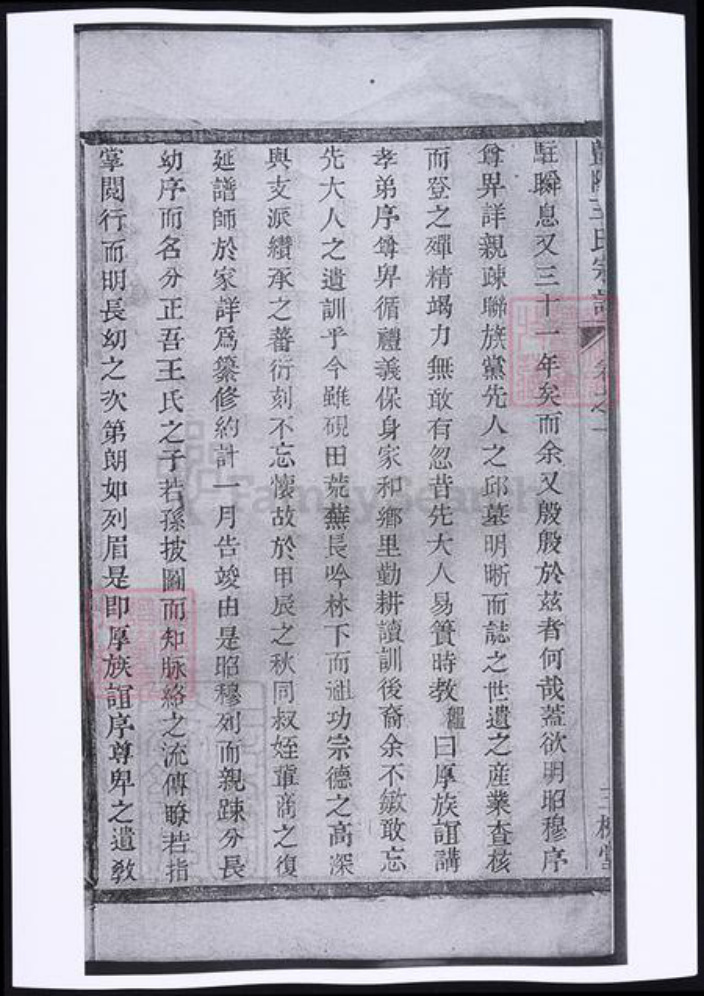 王氏宗譜 卷之一 三槐堂
駐瞬息又三十一年矣而余又殷殷於茲者何哉蓋欲明昭穆序
尊卑詳親疎聯族黨先人之邱墓明晰而誌之世遺之産業查核
而登之殫精竭力無敢有忽昔先大人易簀時教曰厚族誼講
孝弟序尊卑循禮義保身家和鄉里勤耕讀訓後裔余不敏敢忘
先大人之遺訓乎今雖硯田荒蕪長吟林下而祖功宗德之高深
與支派纘承之蕃衍刻不忘懷故於甲辰之秋同叔姪輩商之復
延譜師於家詳爲纂修約計一月告竣由是昭穆列而親踈分長
幼序而名分正吾王氏之子若孫披圖而知脉絡之流傳瞭若指
掌閱行而明長幼之次第朗如列眉是即厚族誼序尊卑之遺教
FamilySearch